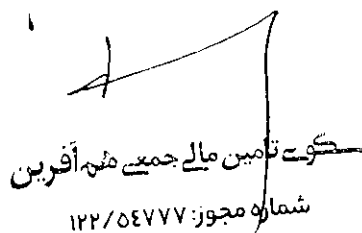 سکوی تامین مالی جمعی هم آفرین
شماره مجوز: ۱۲۲/۵٤۷۷۷